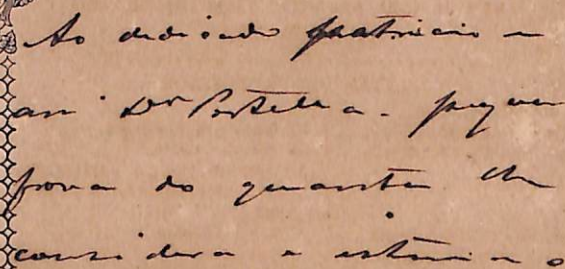 Ao dedicado patricio e
am.º Dr Portella. pequena
prova do quanto lhe
considera e estima o